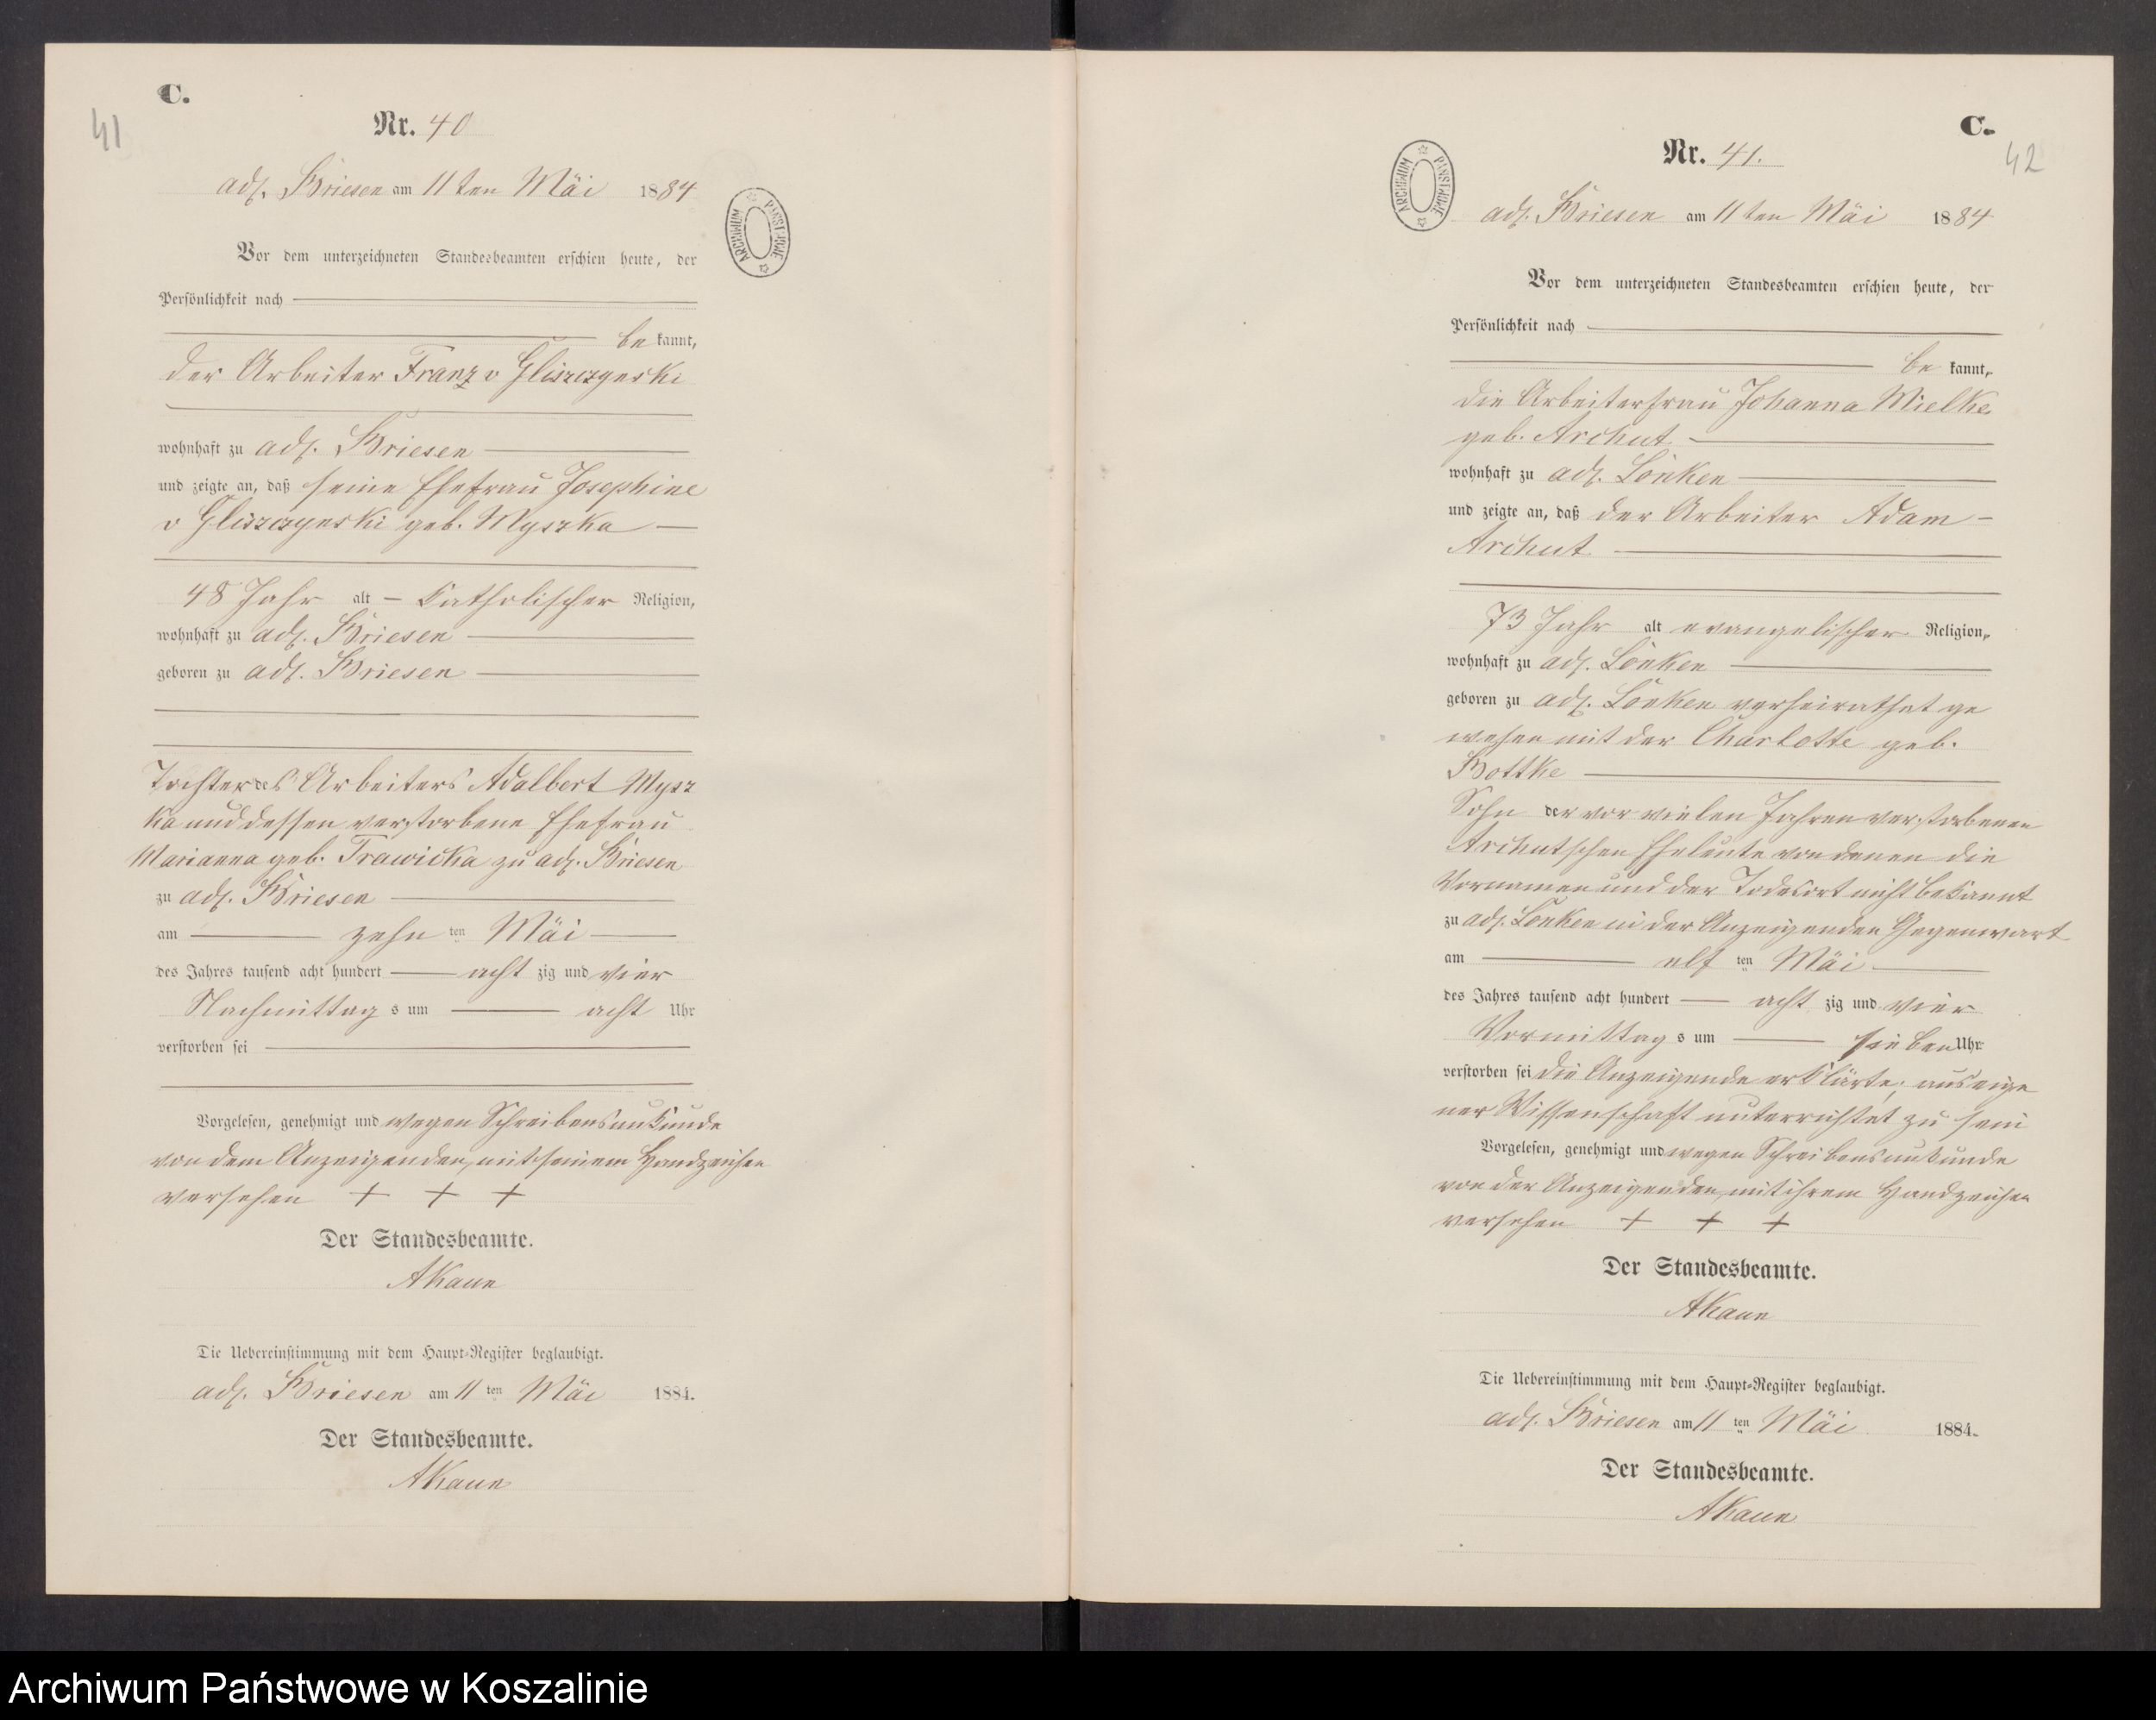 C.
41
Nr. 40
adl. Briesen am 11ten Mai 1884
Vor dem unterzeichneten Standesbeamten erschien heute, der
Persönlichkeit nach
be kannt,
der Arbeiter Franz v Gliszczynski
wohnhaft zu adl. Briesen
und zeigte an, daß seine Ehefrau Josephine
v Gliszczynski geb. Myszka
48 Jahr alt - katholischer Religion,
wohnhaft zu adl. Briesen
geboren zu adl. Briesen
Tochter des Arbeiters Adalbert Mysz
ka und dessen verstorbene Ehefrau
Marianna geb. Trawicka zu adl. Briesen
zu adl. Briesen
am zehn ten Mai
des Jahres tausend acht hundert acht zig und vier
Nachmittag s um acht Uhr
verstorben sei
Vorgelesen, genehmigt und wegen Schreibensunkunde
von dem Anzeigenden, mit seinem Handzeichen
versehen + + +
Der Standesbeamte.
AKaun
Die Uebereinstimmung mit dem Haupt-Register beglaubigt.
adl. Briesen am 11 ten Mai 1884.
Der Standesbeamte.
AKaun
ARCHIWUM PAŃSTWOWE
C.
42
Nr. 41.
ARCHIWUM PAŃSTWOWE
adl. Briesen am 11 ten Mai 1884
Vor dem unterzeichneten Standesbeamten erschien heute, der
Persönlichkeit nach
be kannt,
die Arbeiterfrau Johanna Mielke
geb. Archut
wohnhaft zu adl. Lonken
und zeigte an, daß der Arbeiter Adam
Archut
73 Jahr alt evangelischer Religion,
wohnhaft zu adl. Lonken
geboren zu adl. Lonken verheirathet ge
wesen mit der Charlotte geb.
Bottke
Sohn der vor vielen Jahren verstorbenen
Archutschen Eheleute von denen die
Vornamen und der Todesort nicht bekannt
zu adl. Lonken in der Anzeigenden Gegenwart
am elf ten Mai
des Jahres tausend acht hundert acht zig und vier
Vormittag s um sieben Uhr
verstorben sei die Anzeigende erklärte, aus eige
ner Wissenschaft unterrichtet zu sein
Vorgelesen, genehmigt und wegen Schreibensunkunde
von der Anzeigenden mit ihrem Handzeichen
versehen + + +
Der Standesbeamte.
AKaun
Die Uebereinstimmung mit dem Haupt-Register beglaubigt.
adl. Briesen am 11 ten Mai 1884.
Der Standesbeamte.
AKaun
Archiwum Państwowe w Koszalinie